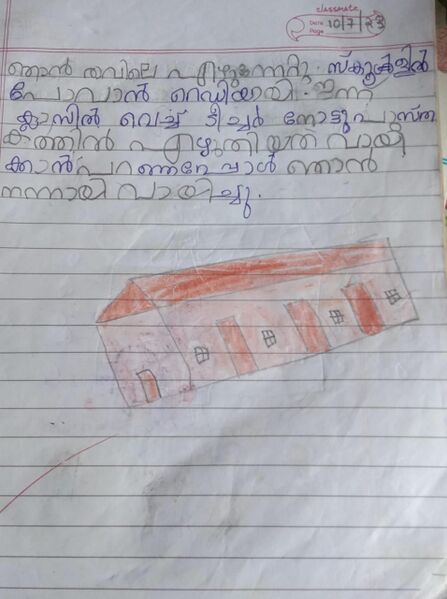 classmate
Date 10/7/23
Page
ഞാൻ രാവിലെ എഴുന്നേറ്റു. സ്കൂളിൽ
പോവാൻ റെഡിയായി. ഇന്ന്
ക്ലാസിൽ വെച്ച് ടീച്ചർ നോട്ടുപുസ്ത
കത്തിൽ എഴുതിയത് വായി
ക്കാൻ പറഞ്ഞപ്പോൾ ഞാൻ
നന്നായി വായിച്ചു.